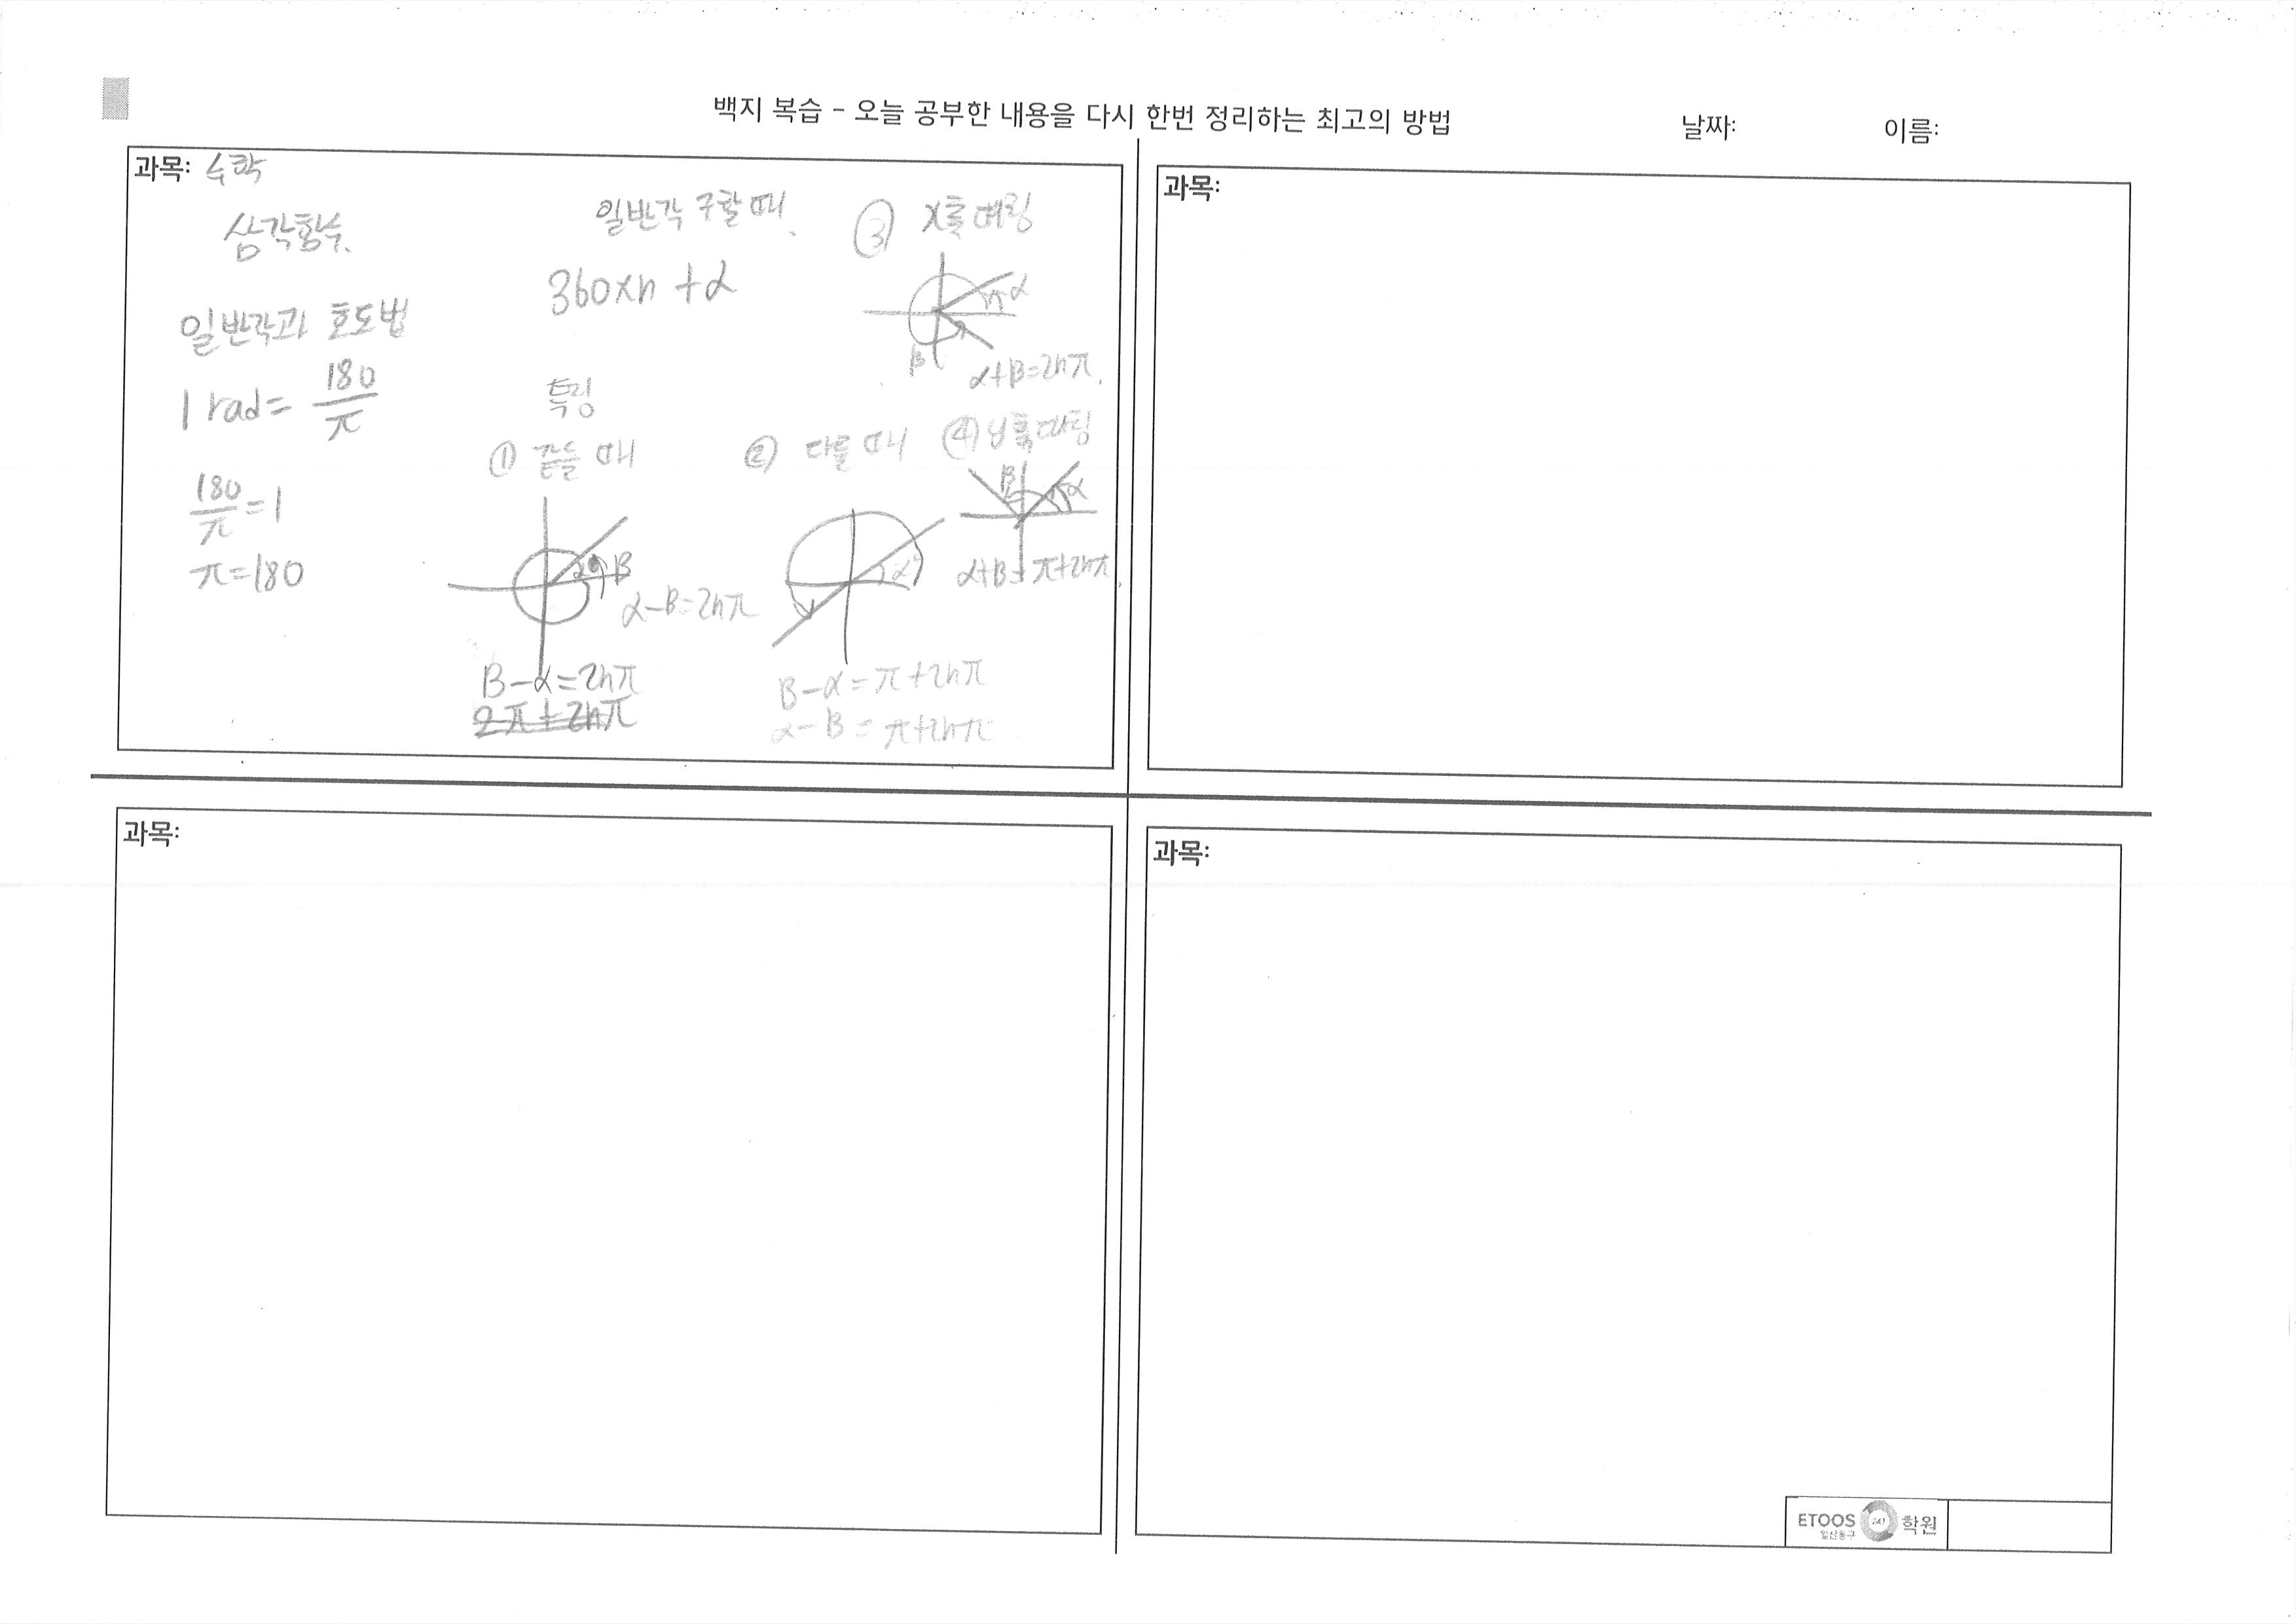 백지 복습 - 오늘 공부한 내용을 다시 한번 정리하는 최고의 방법
날짜:
이름:
과목: 수학
삼각함수.
일반각과 호도법
1 rad = 180/π
180/π = 1
π = 180
일반각 구할 때.
360×n + α
특징
① 같을 때
α β
α-β=2nπ
β-α=2nπ
2π+2nπ
② 다를 때
α
β-α=π+2nπ
α-β=π+2nπ
③ x축 대칭
α
β
α+β=2nπ.
④ y축 대칭
β α
α+β=π+2nπ.
과목:
과목:
과목:
ETOOS 247 학원
일산동구